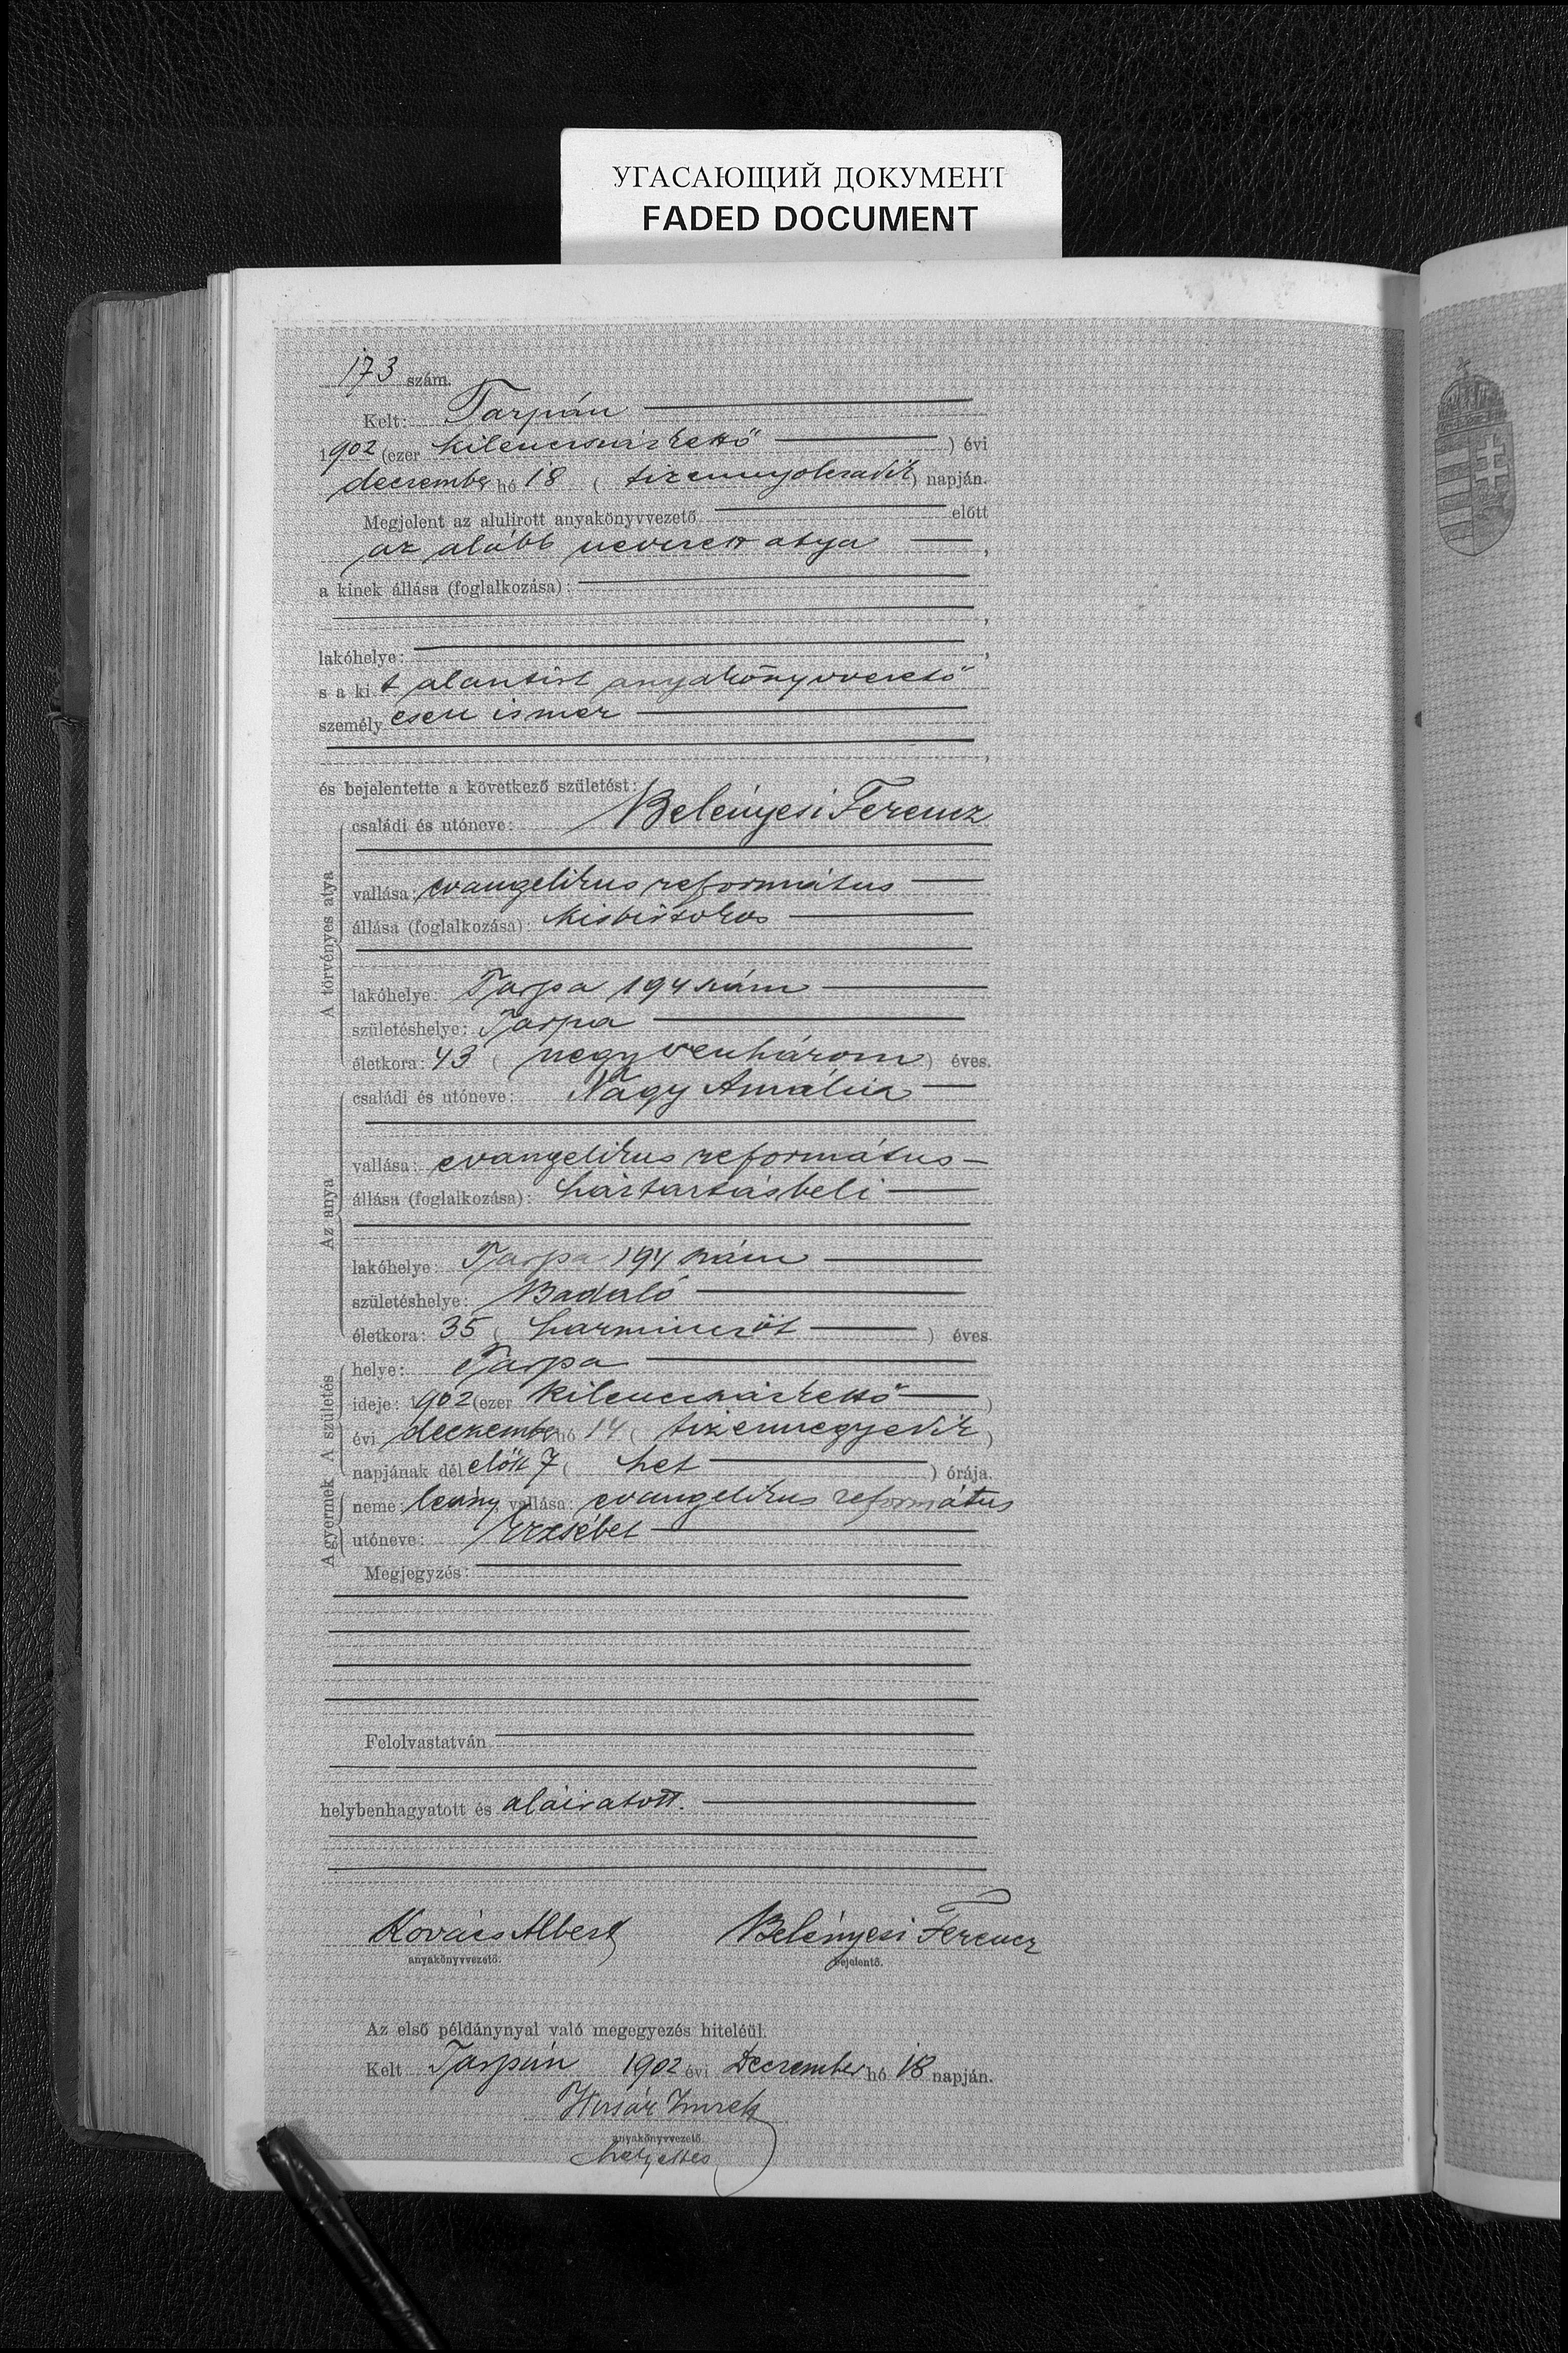 УГАСАЮЩИЙ ДОКУМЕНТ
FADED DOCUMENT
173 szám.
Kelt: Tarpán
1902 (ezer kilenczszázkettő ) évi
deczember hó 18 ( tizennyolczadik ) napján.
Megjelent az alulirott anyakönyvvezető előtt
az alább nevezett atya ,
a kinek állása (foglalkozása):
,
lakóhelye: ,
s a kit alantirt anyakönyvvezető
személyesen ismer
,
és bejelentette a következő születést:
A törvényes atya
családi és utóneve: Belényesi Ferencz
vallása: evangelikus református
állása (foglalkozása): kisbirtokos
lakóhelye: Tarpa 194 szám
születéshelye: Tarpa
életkora: 43 ( negyvenhárom ) éves.
Az anya
családi és utóneve: Nagy Amália
vallása: evangelikus református
állása (foglalkozása): háztartásbeli
lakóhelye: Tarpa 194 szám
születéshelye: Badaló
életkora: 35 ( harminczöt ) éves
A születés
helye: Tarpa
ideje: 1902 (ezer kilenczszázkettő )
évi deczember hó 14 ( tizennegyedik )
napjának délelőtt 7 ( het ) órája.
A gyermek
neme: leány, vallása: evangelikus református
utóneve: Erzsébet
Megjegyzés:
Felolvastatván
helybenhagyatott és aláiratott.
Kovács Albert Belényesi Ferencz
anyakönyvvezető. bejelentő.
Az első példánynyal való megegyezés hiteléül.
Kelt Tarpán 1902 évi December hó 18 napján.
Huszár Imre
anyakönyvvezető.
helyettes